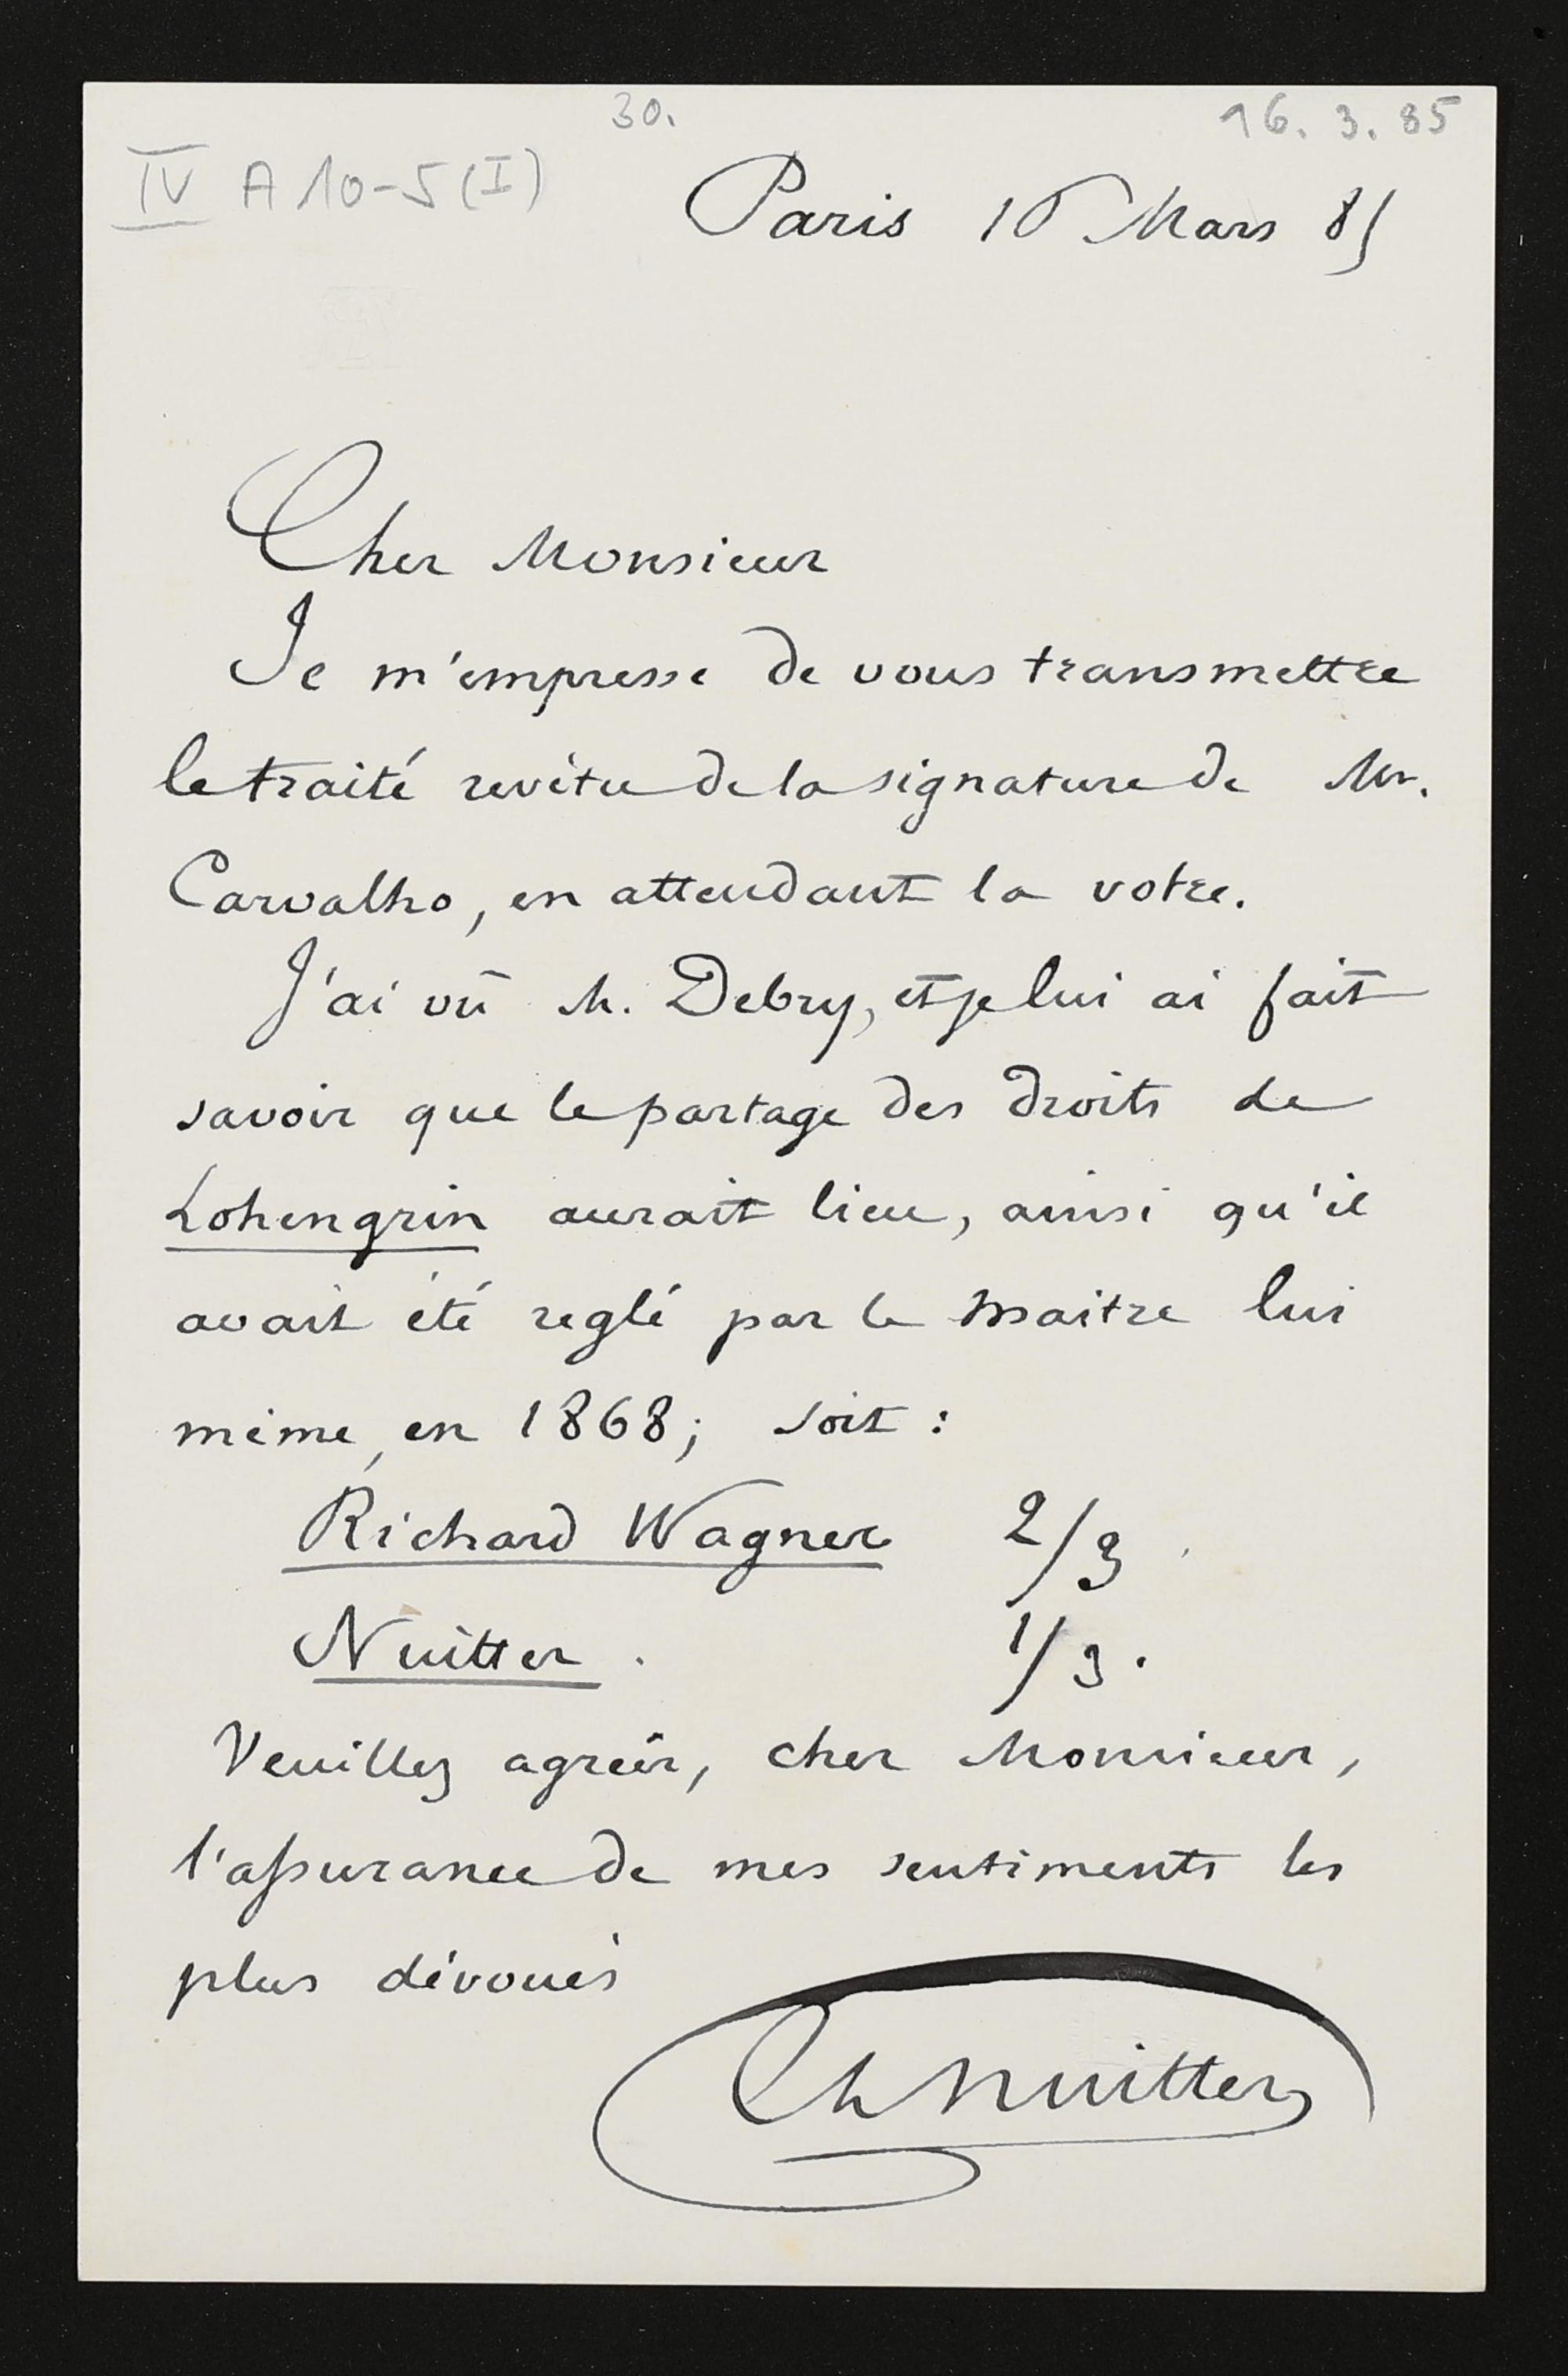 30.
16. 3. 85
IV A 10-5 (I)
Paris 16 Mars 85
Cher Monsieur
Je m'empresse de vous transmettre
le traité revêtu de la signature de Mr.
Carvalho, en attendant la votre.
J'ai vû M. Debry, et je lui ai fait
savoir que le partage des droits de
Lohengrin aurait lieu, ainsi qu'il
avait été reglé par le maitre lui
même, en 1868; soit :
Richard Wagner 2/3
Nuitter. 1/3.
Veuillez agréér, cher Monsieur,
l'assurance de mes sentiments les
plus dévoués
Ch Nuitter